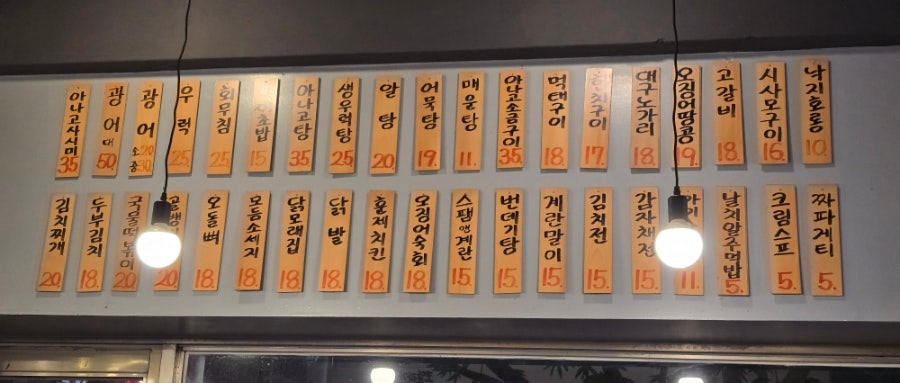 아나고사시미 35
광어 대 50
광어 소 20 중 30
우럭 25
회무침 25
초밥 15
아나고탕 35
생우럭탕 25
알탕 20
어묵탕 19
매운탕 11.
아나고소금구이 35
먹태구이 18.
구이 17.
대구노가리 18.
오징어땅콩 19.
고갈비 18.
시사모구이 16.
낙지호롱 10.
김치찌개 20
두부김치 18.
국물떡볶이 20
20
오돌뼈 18.
모듬소세지 18.
닭모래집 18.
닭발 18.
훈제치킨 18.
오징어숙회 18.
스팸앤계란 15.
번데기탕 15.
계란말이 15.
김치전 15.
감자채전 15.
11.
날치알주먹밥 5.
크림스프 5.
짜파게티 5.